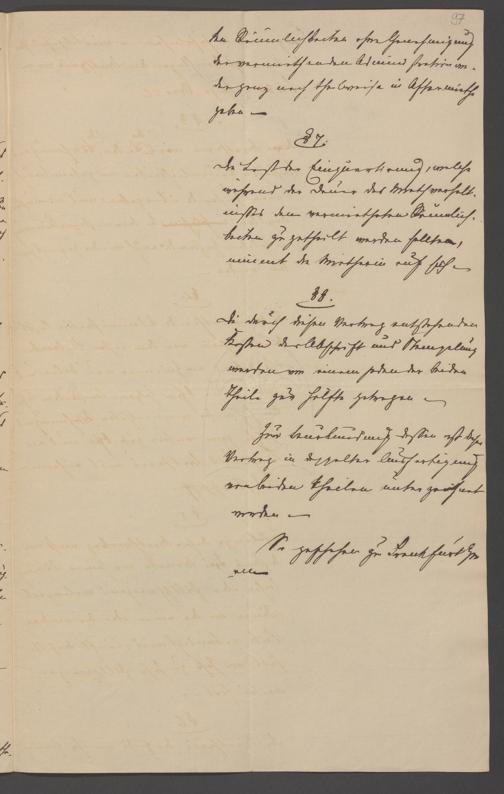 97
den Räumlichkeiten ohne Genehmigung
der vermiethenden Administration we-
der ganz noch theilweise in Aftermiethe
geben.
§ 7.
Die Last der Einquartierung, welche
während der Dauer des Miethverhält-
nisses den vermietheten Räumlich-
keiten zugetheilt werden sollten,
nimmt die Mietherin auf sich.
§ 8.
Die durch diesen Vertrag entstehenden
Kosten der Abschrift und Stempelung
werden von einem jeden der beiden
Theile zur Hälfte getragen.
Zur Beurkundung dessen ist dieser
Vertrag in doppelter Ausfertigung
von beiden Theilen unterzeichnet
worden.
So geschehen zu Frankfurt